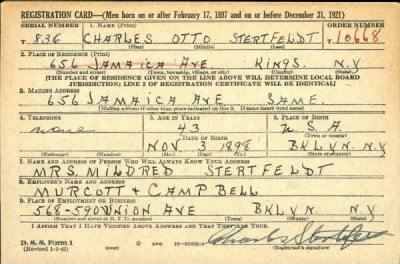 REGISTRATION CARD—(Men born on or after February 17, 1897 and on or before December 31, 1921)
SERIAL NUMBER 1. NAME (Print) ORDER NUMBER
T 836 CHARLES OTTO STERTFELDT 10668
(First) (Middle) (Last)
2. PLACE OF RESIDENCE (Print)
656 JAMAICA AVE. KINGS. N.Y
(Number and street) (Town, township, village, or city) (County) (State)
[THE PLACE OF RESIDENCE GIVEN ON THE LINE ABOVE WILL DETERMINE LOCAL BOARD
JURISDICTION; LINE 2 OF REGISTRATION CERTIFICATE WILL BE IDENTICAL]
3. MAILING ADDRESS
656 JAMAICA AVE SAME.
[Mailing address if other than place indicated on line 2. If same insert word same]
4. TELEPHONE 5. AGE IN YEARS 6. PLACE OF BIRTH
none 43 U.S.A.
DATE OF BIRTH (Town or county)
NOV 3 1898 BKLYN. N.Y.
(Exchange) (Number) (Mo.) (Day) (Yr.) (State or country)
7. NAME AND ADDRESS OF PERSON WHO WILL ALWAYS KNOW YOUR ADDRESS
MRS. MILDRED STERTFELDT
8. EMPLOYER'S NAME AND ADDRESS
MURCOTT + CAMPBELL
9. PLACE OF EMPLOYMENT OR BUSINESS
568-590 UNION AVE BKLYN N.Y
(Number and street or R. F. D. number) (Town) (County) (State)
I AFFIRM THAT I HAVE VERIFIED ABOVE ANSWERS AND THAT THEY ARE TRUE.
D. S. S. Form 1
(Revised 1-1-42) (over)
Charles
(Registrant's signature)